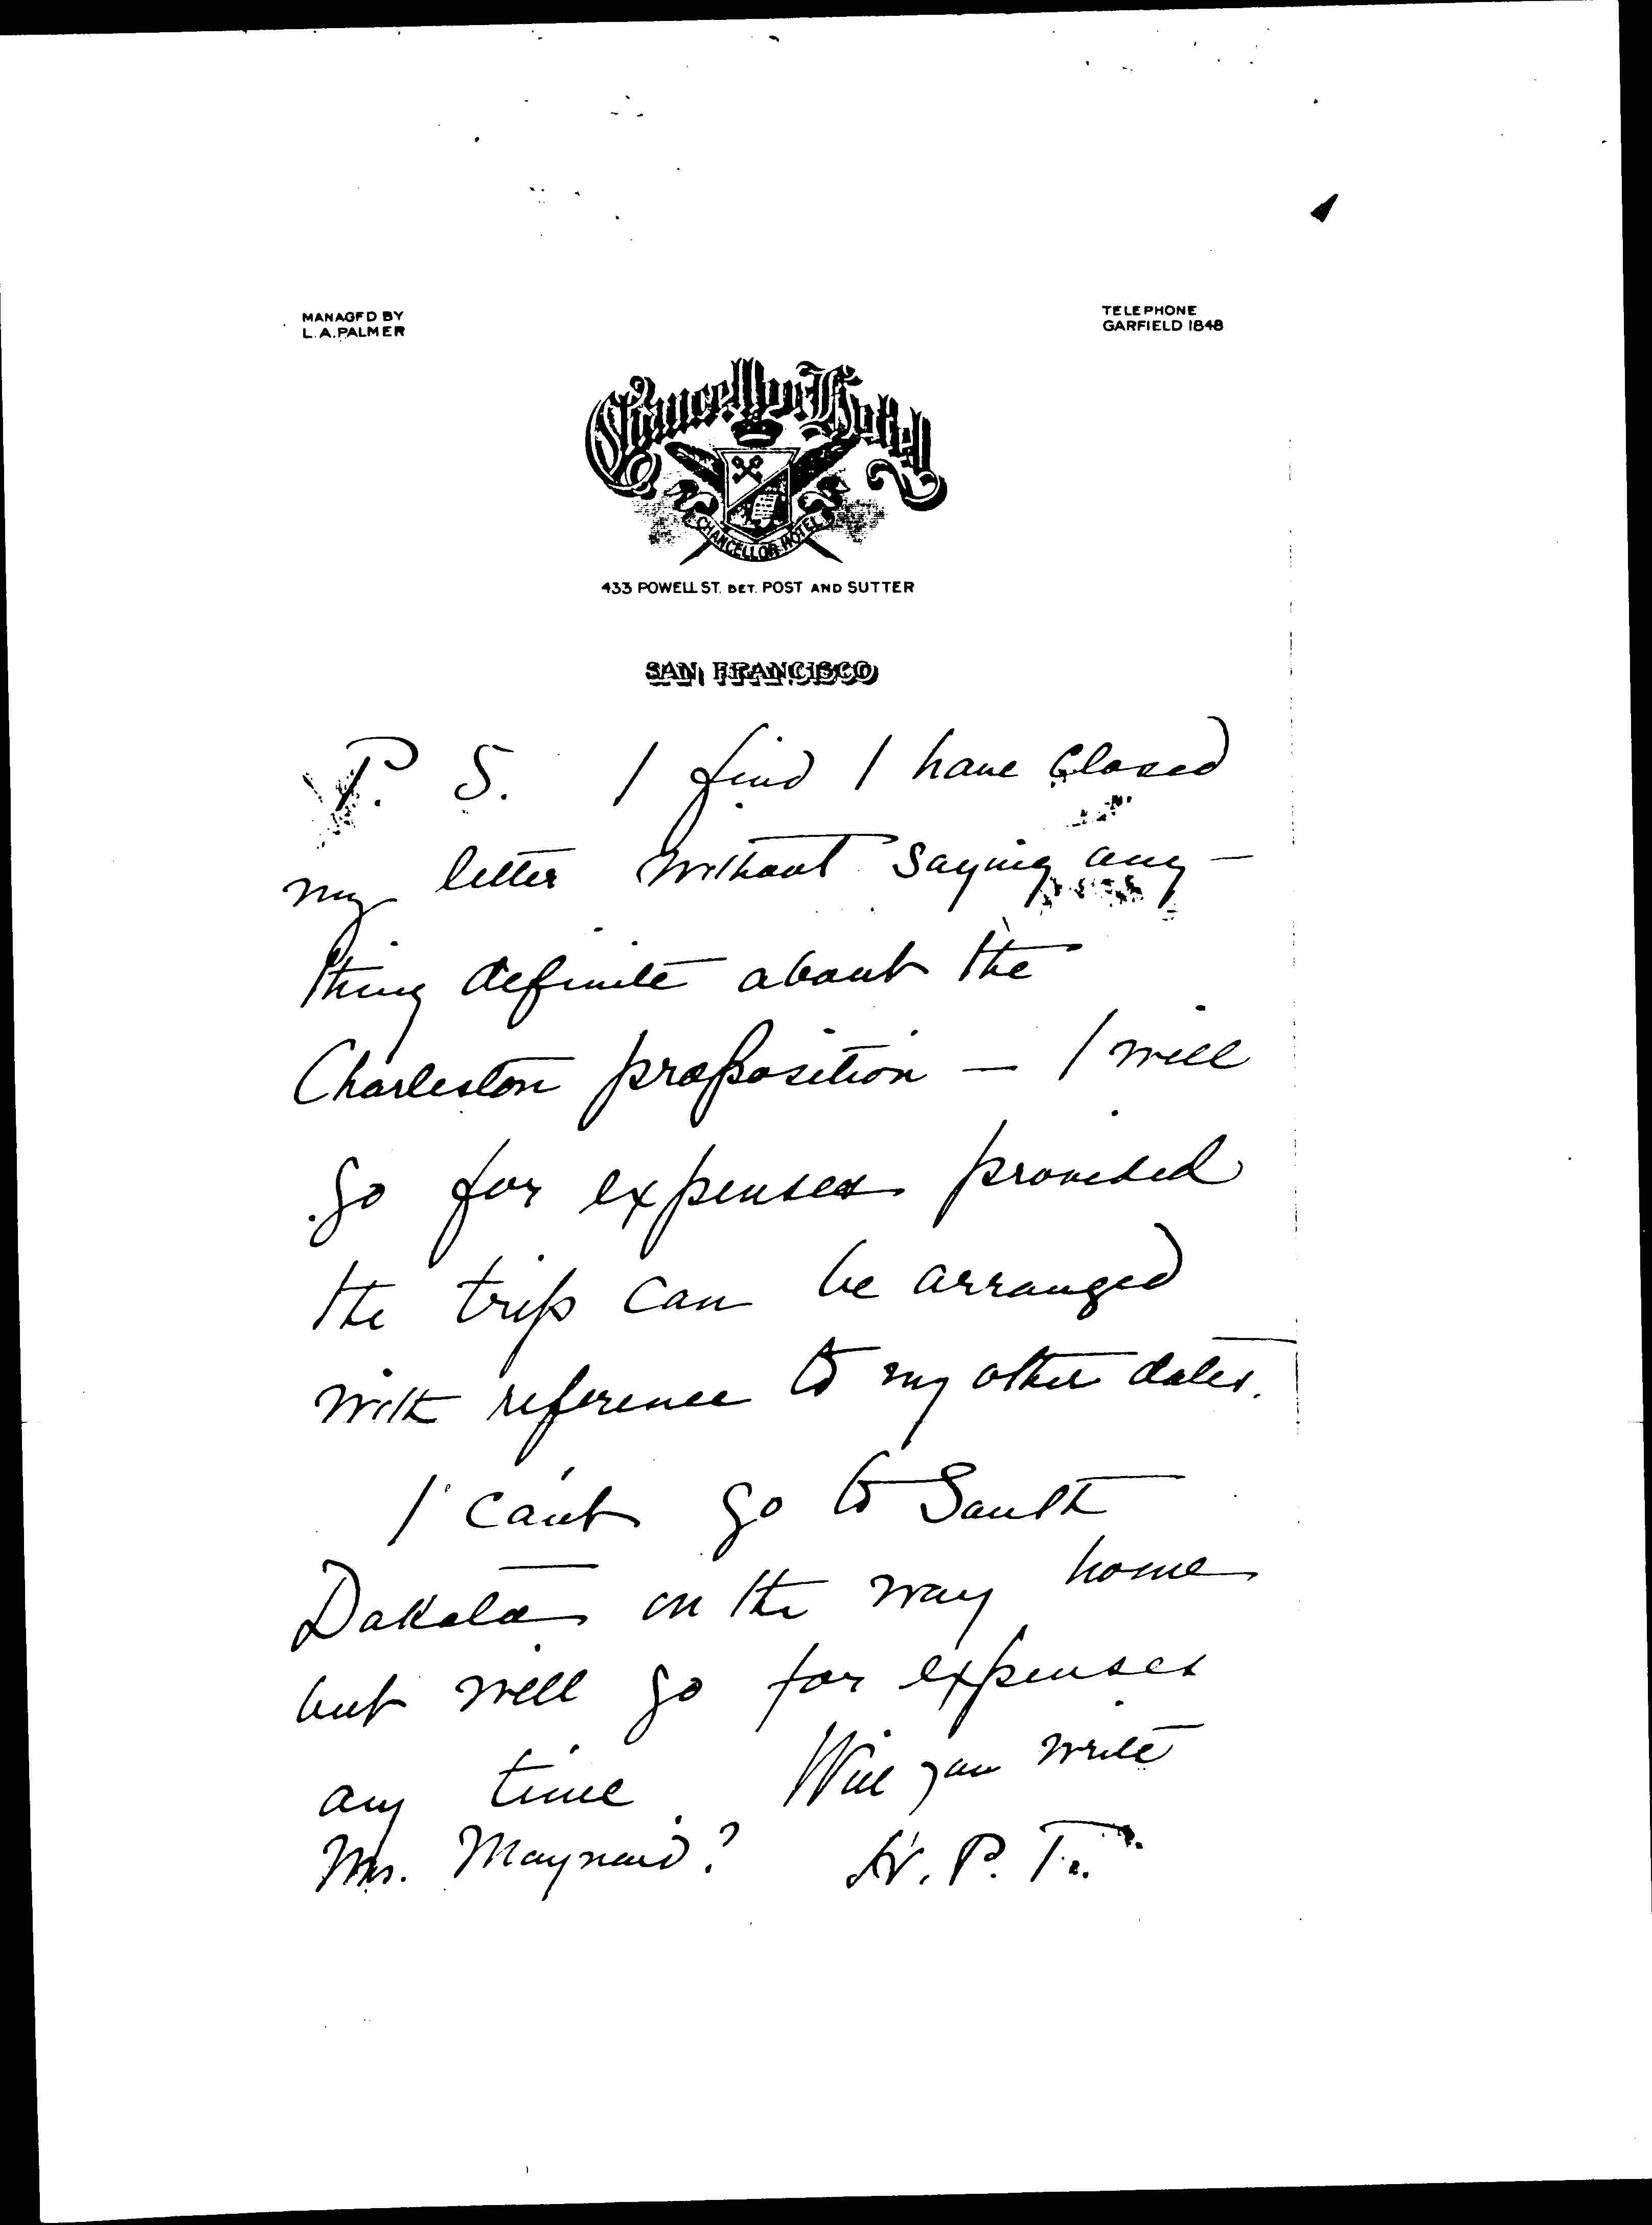 MANAGED BY
L.A. PALMER
TELEPHONE
GARFIELD 1848
Chancellor Hotel
CHANCELLOR HOTEL
433 POWELL ST. BET. POST AND SUTTER
SAN FRANCISCO
P. S. I find I have closed
my letter without saying any-
thing definite about the
Charleston proposition — I will
go for expenses provided
the trip can be arranged
with reference to my other dates.
I can't go to South
Dakota on the way home
but will go for expenses
any time. Will you write
Mrs. Maynard? H. P. T.